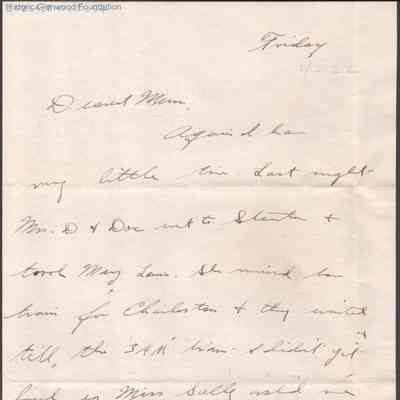 Historic Glenwood Foundation
Friday
Dearest Mom.
Again I have
my little time. Last night
Mrs. D & Doc went to Staunton &
took Mary Lane. She missed her
train for Charleston & they waited
till the 3 AM train. I didn't get
back as Miss Sally asked me